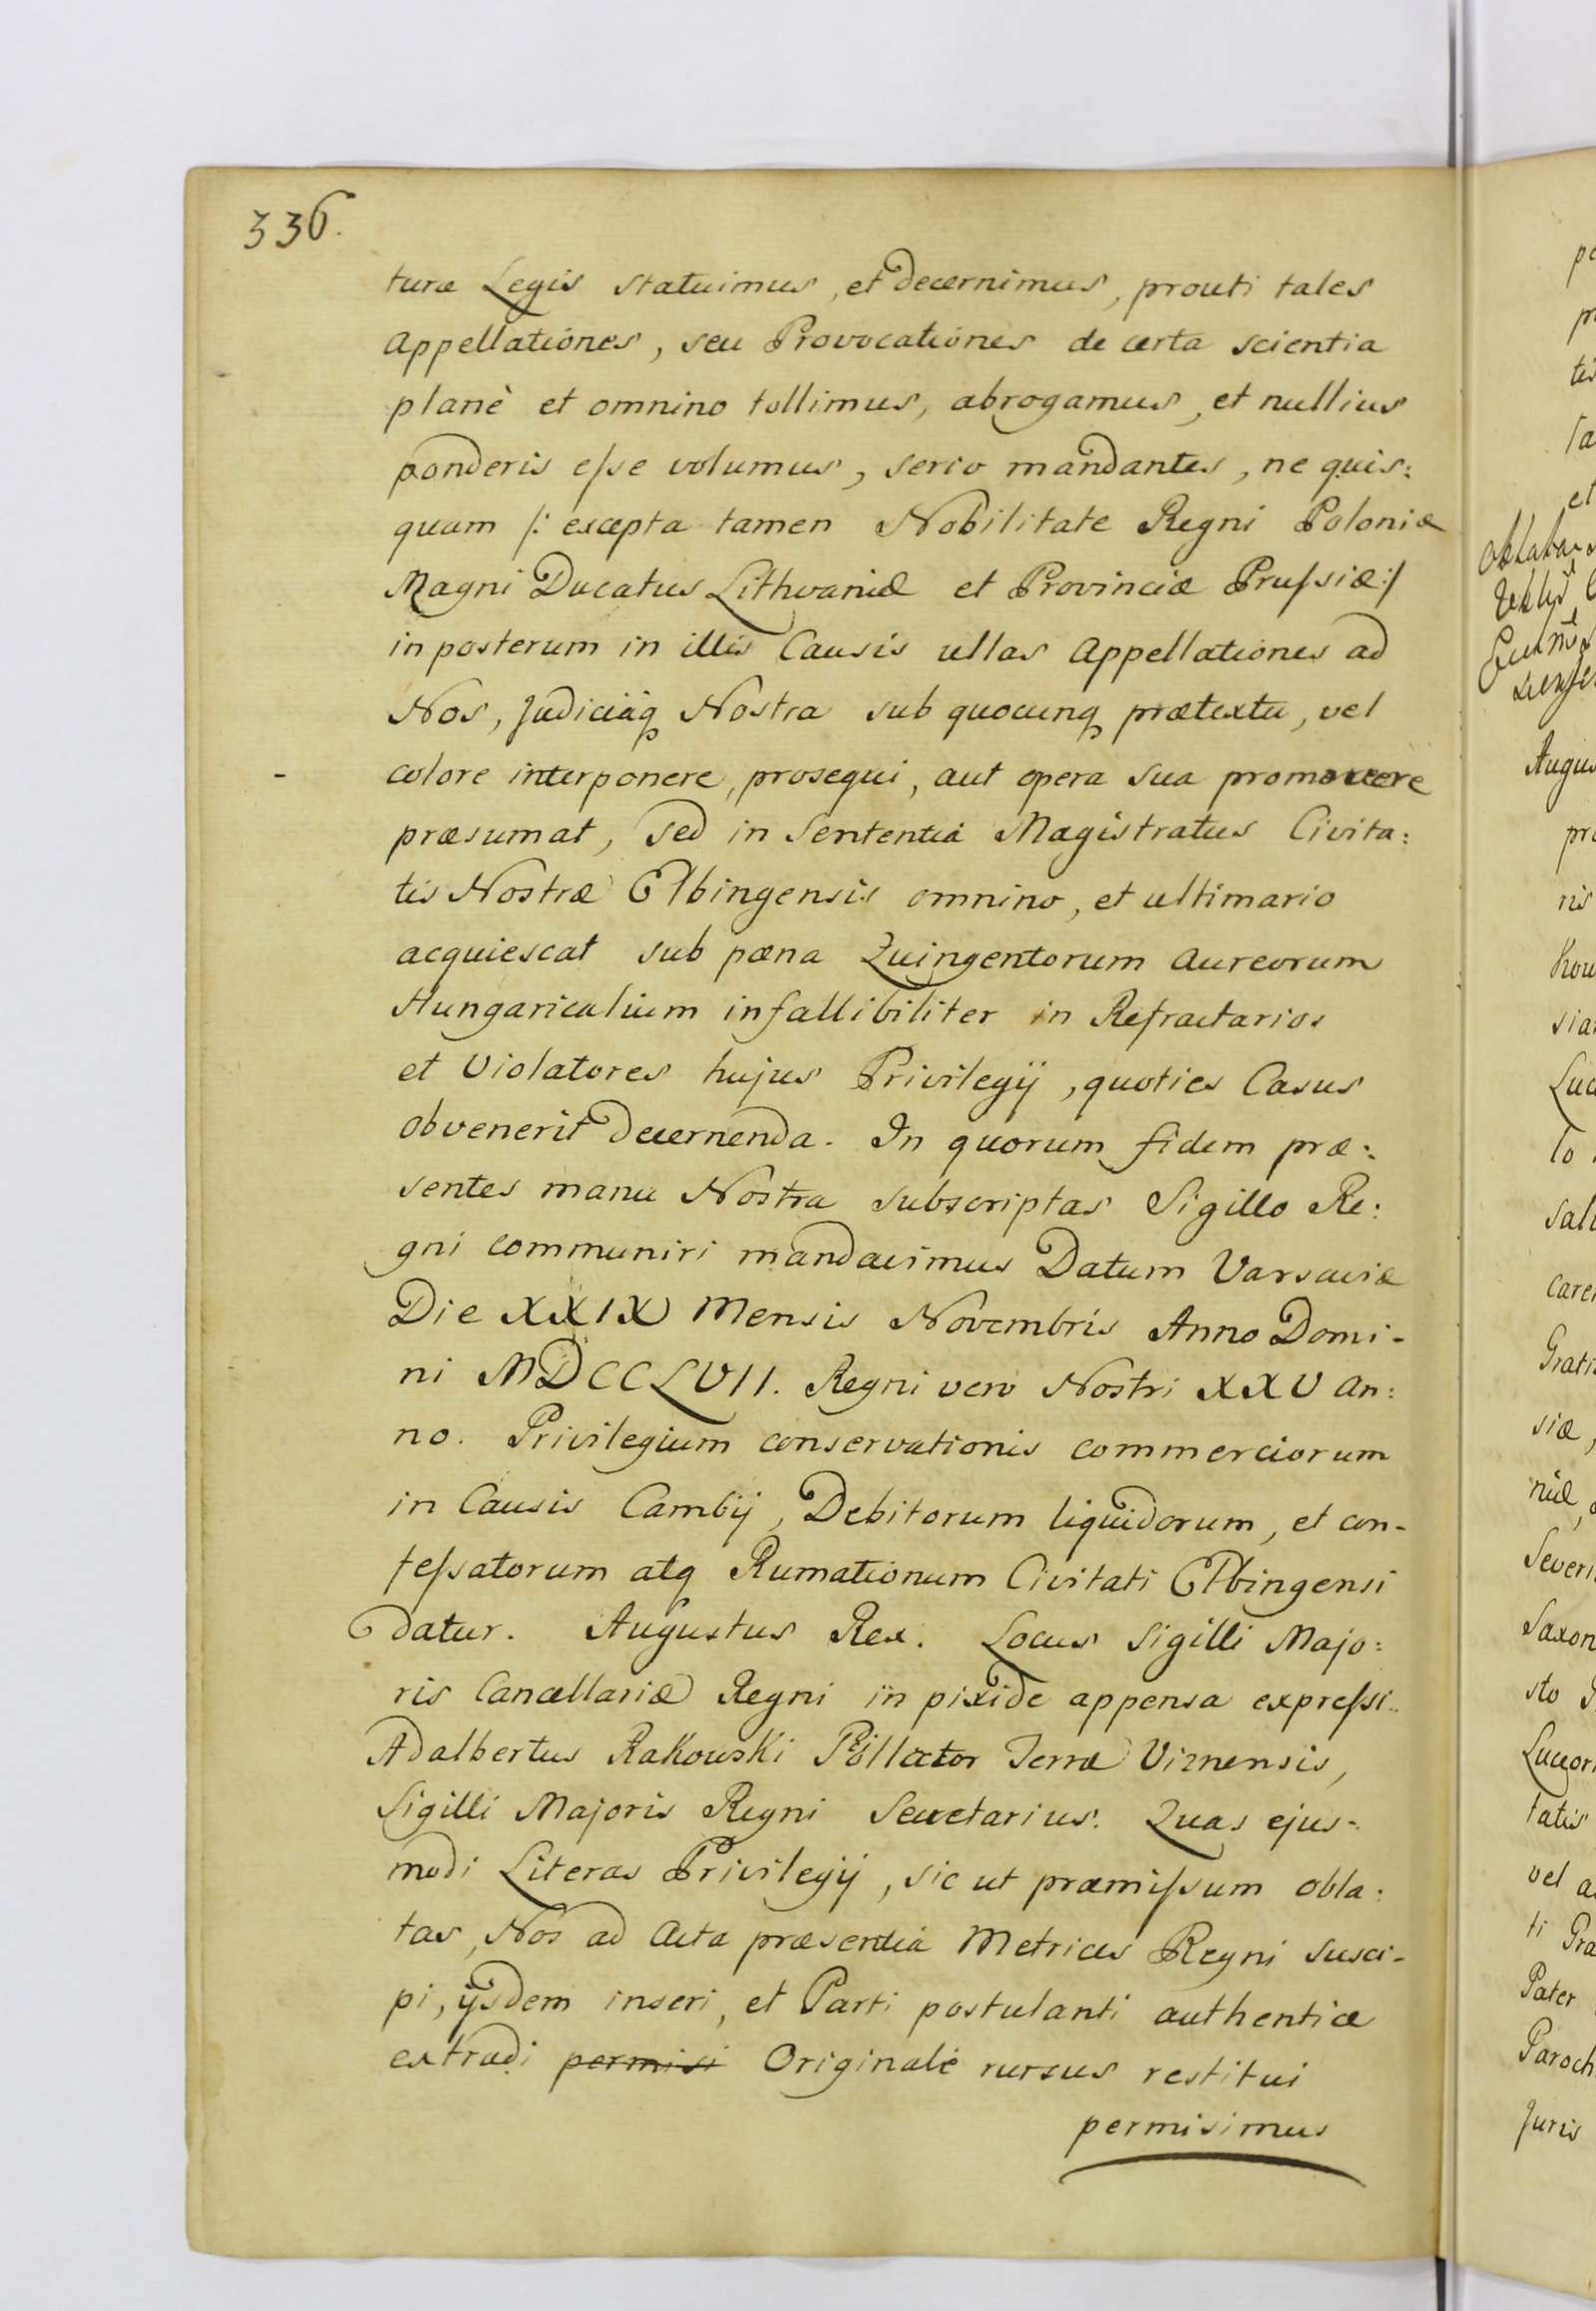 336.
turæ Legis statuimus, et decernimus, prouti tales
Appellationes, seu Provocationes de certa scientia
planè et omnino tollimus, abrogamus, et nullius
ponderis eſse volumus, serio mandantes, ne quis:
quam /: excepta tamen Nobilitate Regni Poloniæ
Magni Ducatus Lithvaniæ et Provinciæ Pruſsiæ :/
in posterum in illis Causis ullas Appellationes ad
Nos, Judiciáq Nostra sub quocunq prætextu, vel
colore interponere, prosequi, aut opera sua promovere
præsumat, sed in Sententiá Magistratus Civita:
tis Nostræ Elbingensis omnino, et ultimario
acquiescat sub pæna Quingentorum Aureorum
Hungaricalium infallibiliter in Refractarios
et Violatores hujus Privilegij, quoties Casus
obvenerit decernenda. In quorum fidem præ:
sentes manu Nostra subscriptas Sigillo Re:
gni communiri mandavimus Datum Varsaviæ
Die XXIX Mensis Novembris Anno Domi-
ni MDCCLVII. Regni vero Nostri XXV An:
no. Privilegium conservationis commerciorum
in Causis Cambij, Debitorum liquidorum, et con-
feſsatorum atq Rumationum Civitati Elbingensi
datur. Augustus Rex. Locus Sigilli Majo:
ris Cancellariæ Regni in pixide appensa expreſsi.
Adalbertus Rakowski Pollector Terræ Viznensis,
Sigilli Majoris Regni Secretarius. Quas ejus-
modi Literas Privilegij, sic ut præmiſsum obla:
tas, Nos ad Acta præsentia Metrices Regni susci-
pi, ijsdem inseri, et Parti postulanti authenticæ
extradi permisi Originale rursus restitui
permisimus
Augus
Pater
Juris